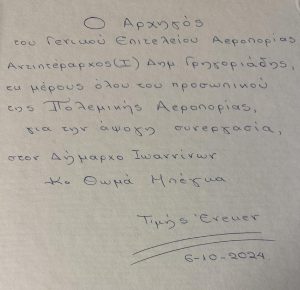 Ο Αρχηγός
του Γενικού Επιτελείου Αεροπορίας
Αντιπτέραρχος (Ι) Δημ Γρηγοριάδης,
εκ μέρους όλου του προσωπικού
της Πολεμικής Αεροπορίας,
για την άψογη συνεργασία,
στον Δήμαρχο Ιωαννίνων
Κο Θωμά Μπέγκα
Τιμής Ένεκεν
6-10-2024